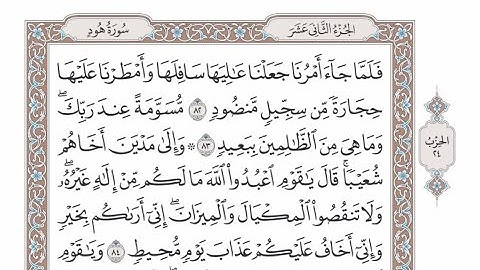 سُورَةُ هُودٍ
الجُزْءُ الثَّانِي عَشَرَ
فَلَمَّا جَآءَ أَمْرُنَا جَعَلْنَا عَٰلِيَهَا سَافِلَهَا وَأَمْطَرْنَا عَلَيْهَا
حِجَارَةً مِّن سِجِّيلٍ مَّنضُودٍ ۝٨٢ مُّسَوَّمَةً عِندَ رَبِّكَۖ
وَمَا هِيَ مِنَ ٱلظَّٰلِمِينَ بِبَعِيدٍ ۝٨٣ ۞ وَإِلَىٰ مَدْيَنَ أَخَاهُمْ
شُعَيْبًاۚ قَالَ يَٰقَوْمِ ٱعْبُدُوا۟ ٱللَّهَ مَا لَكُم مِّنْ إِلَٰهٍ غَيْرُهُۥۖ
وَلَا تَنقُصُوا۟ ٱلْمِكْيَالَ وَٱلْمِيزَانَۖ إِنِّيٓ أَرَىٰكُم بِخَيْرٍ
وَإِنِّيٓ أَخَافُ عَلَيْكُمْ عَذَابَ يَوْمٍ مُّحِيطٍ ۝٨٤ وَيَٰقَوْمِ
الحِزْبُ
٢٤